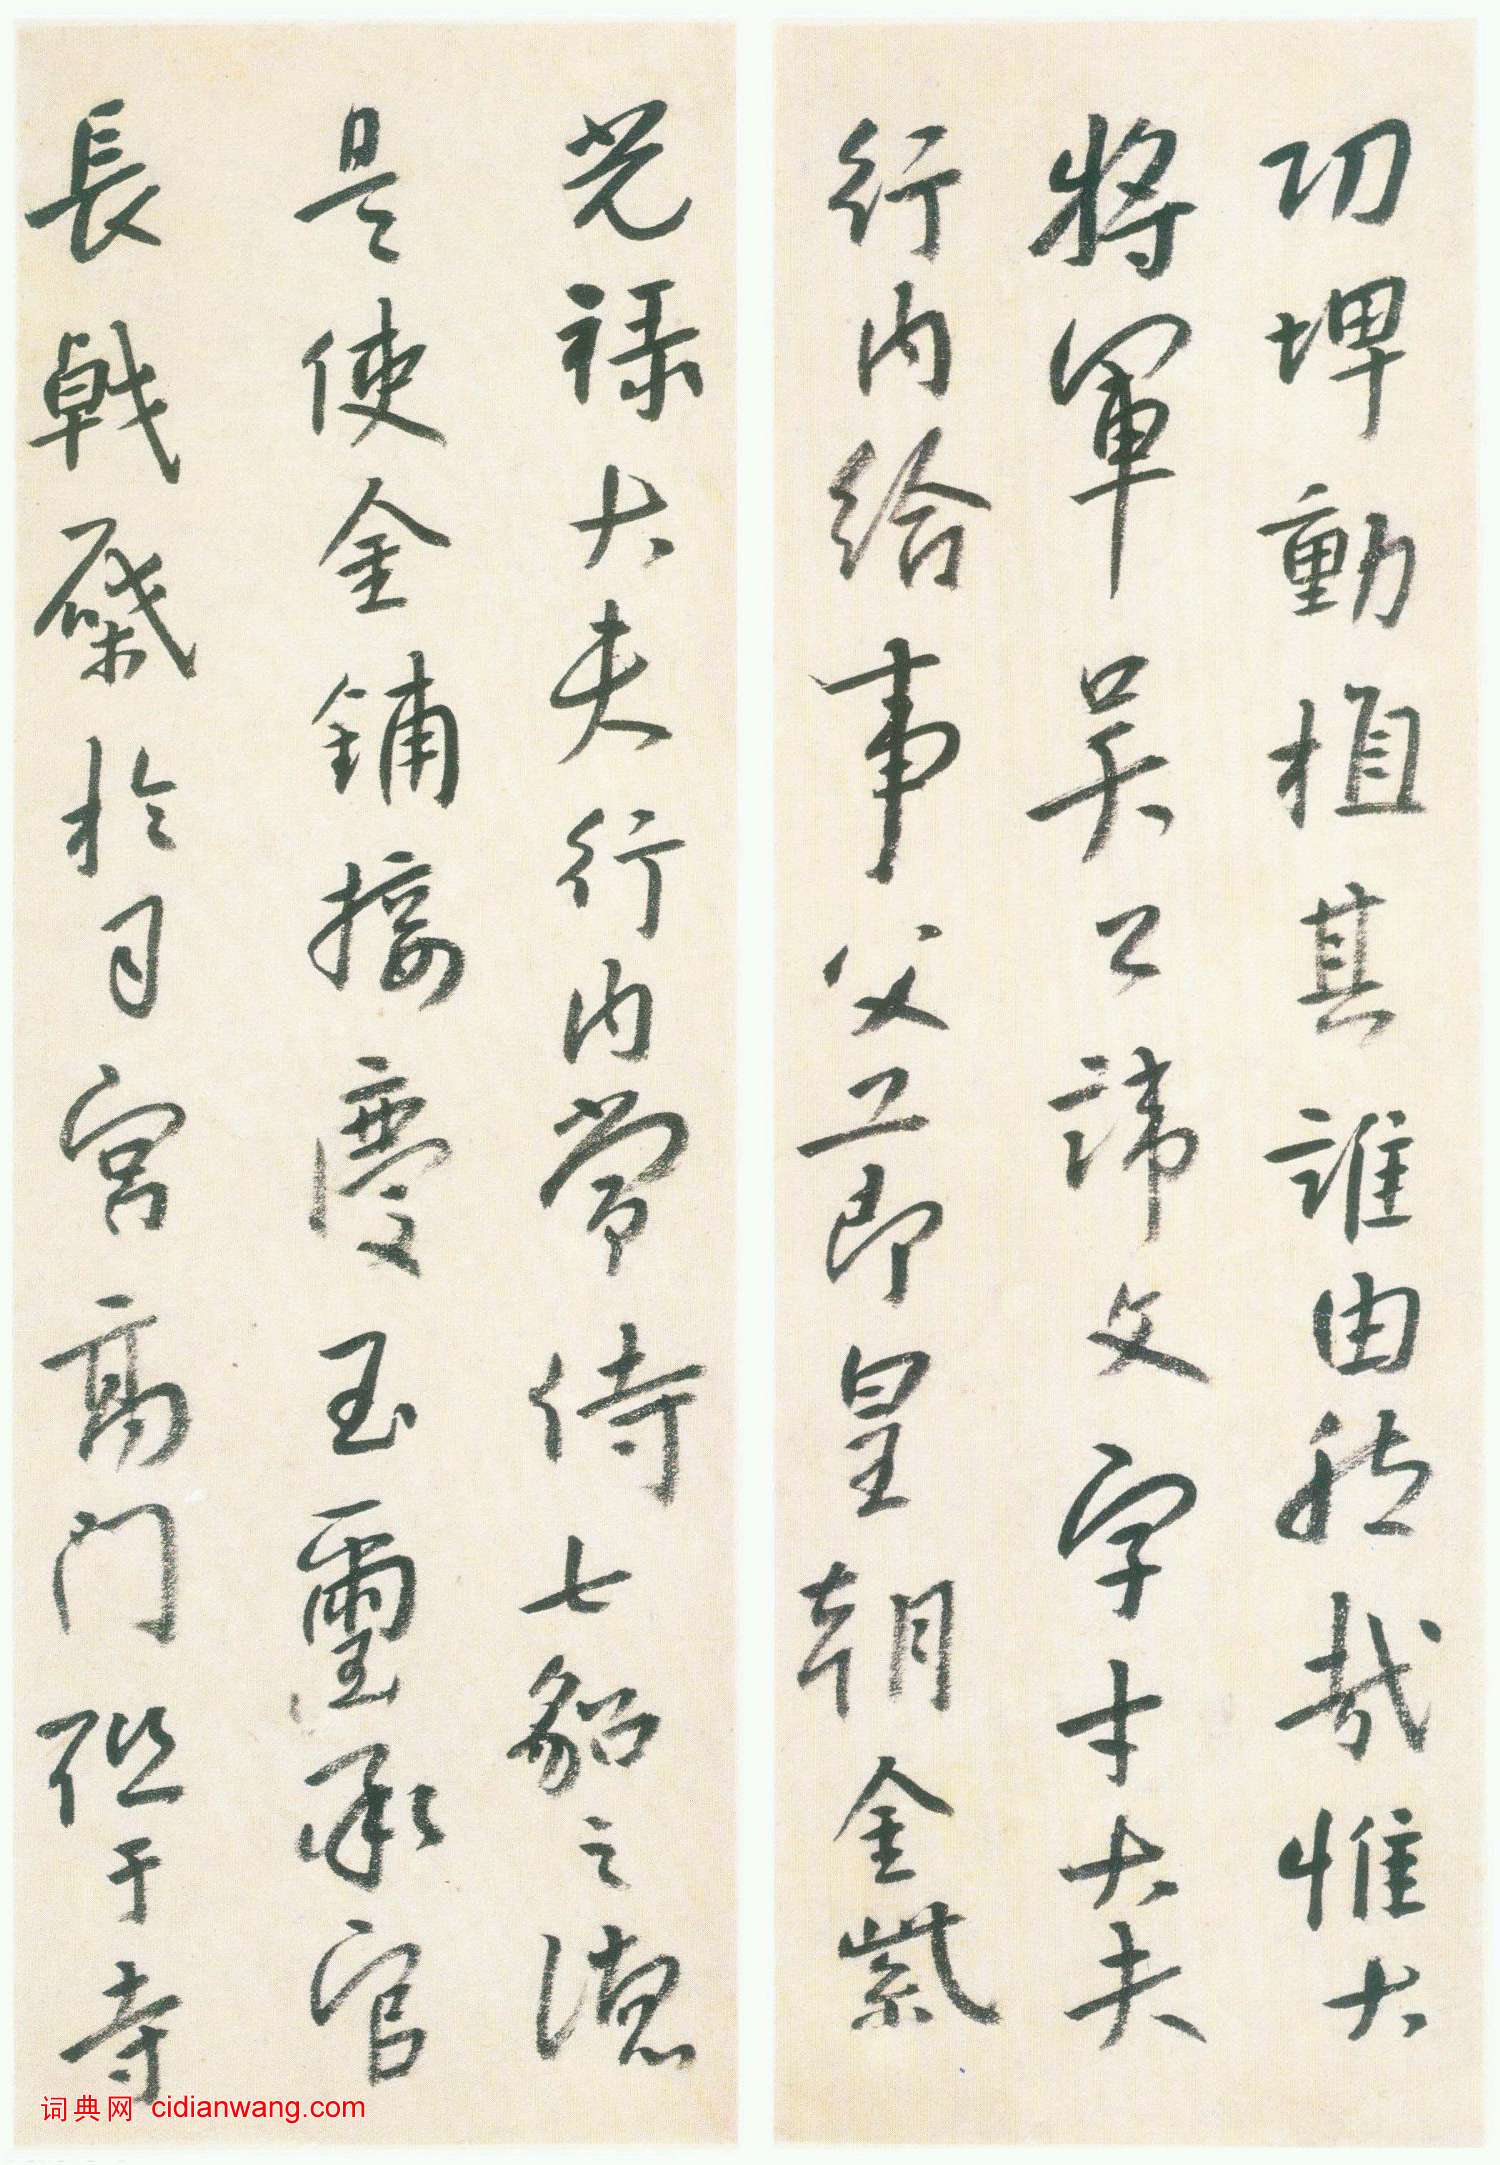 功埤動植其誰由然哉惟大
将軍吴公諱文字才大夫
行内給事父工即皇朝金紫
光禄大夫行内常侍七貂之德
是使金鋪接慶玉璽承官
長戟棨於司宮高門砥于寺
词典网 cidianwang.com